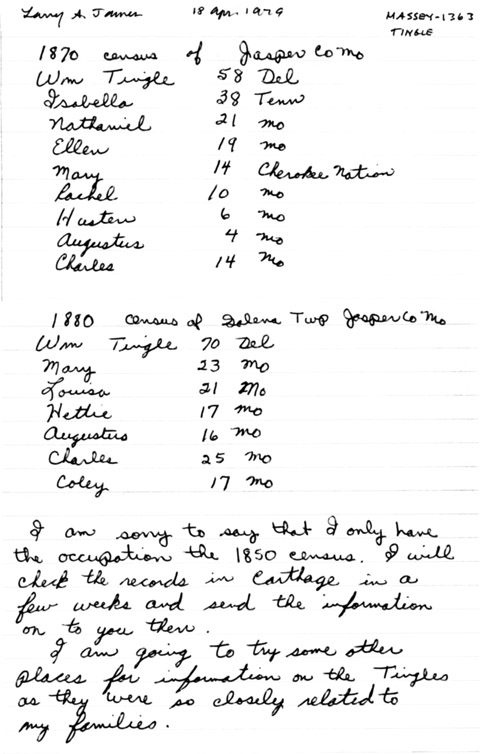 Larry A. James 18 Apr. 1979 MASSEY-1363
TINGLE
1870 census of Jasper Co Mo
Wm Tingle 58 Del
Isabella 38 Tenn
Nathaniel 21 mo
Ellen 19 mo
Mary 14 Cherokee Nation
Rachel 10 mo
Husten 6 mo
Augustus 4 mo
Charles 14 mo
1880 census of Galena Twp Jasper Co Mo
Wm Tingle 70 Del
Mary 23 mo
Louisa 21 Mo
Hettie 17 mo
Augustus 16 mo
Charles 25 mo
Coley 17 mo
I am sorry to say that I only have
the occupation the 1850 census. I will
check the records in Carthage in a
few weeks and send the information
on to you then.
I am going to try some other
places for information on the Tingles
as they were so closely related to
my families.